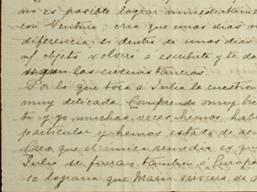 no es posible lograr inmediatamente
con Ventura; creo que unos días m
diferencia; si dentro de unos días
mi objeto volveré a escribirte y te da
segun las circunstancias
Por lo que toca a Julia la cuestión
muy delicada. Comprendo muy bie
to y yo muchas veces hemos habl
particular y hemos estado de acu
Creo que el único remedio es que
Julio se fueran también a Europa
se lograría que María